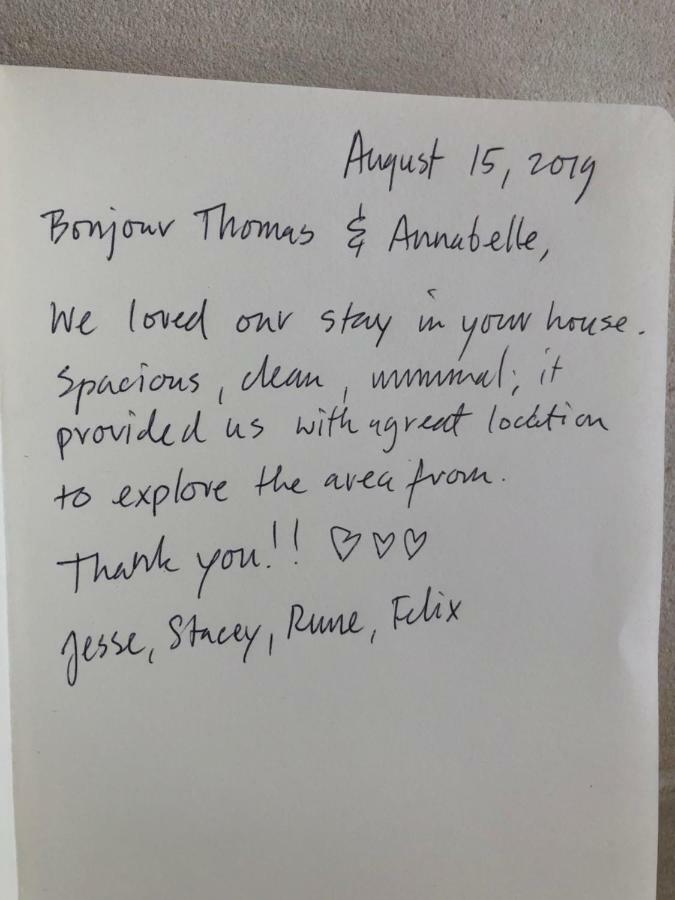 August 15, 2019
Bonjour Thomas & Annabelle,
We loved our stay in your house.
Spacious, clean, minimal; it
provided us with a great location
to explore the area from.
Thank you!! ♡♡♡
Jesse, Stacey, Rune, Felix